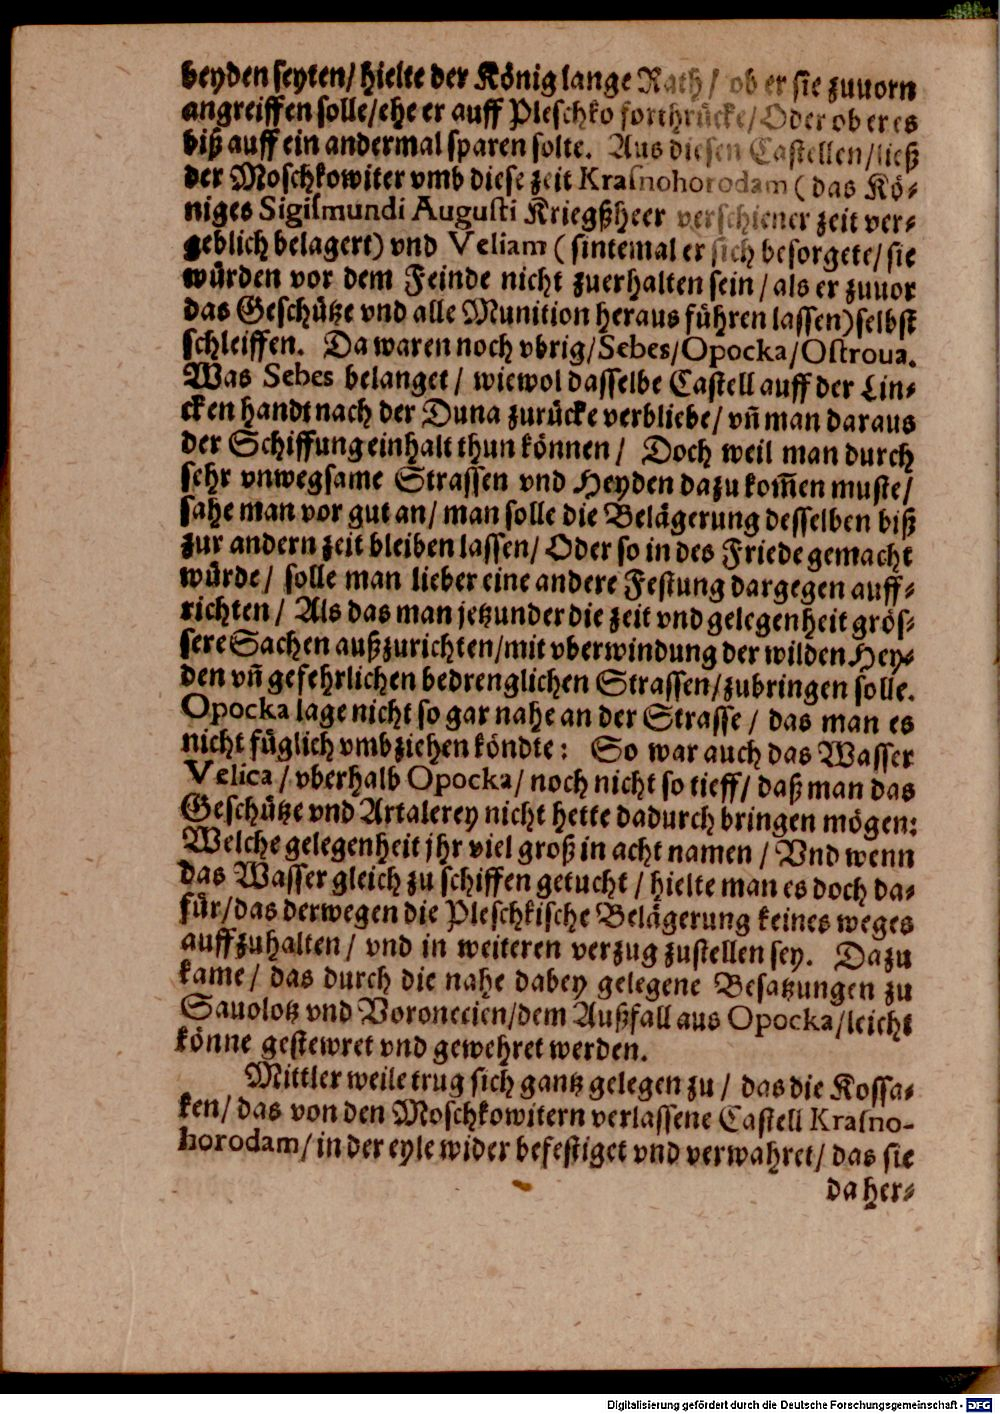 beyden seyten/ hielte der König lange Rath/ ob er sie zuuorn
angreiffen solle/ehe er auff Pleschko forthrücke/Oder ob er es
biß auff ein andermal sparen solte. Aus diesen Castellen/ließ
der Moschkowiter vmb diese zeit Krasnohorodam (das Kö-
niges Sigismundi Augusti Kriegßheer verschiener zeit ver-
geblich belagert) vnd Veliam (sintemal er sich besorgete/sie
würden vor dem Feinde nicht zuerhalten sein/als er zuuor
das Geschütze vnd alle Munition heraus führen lassen)selbst
schleiffen. Da waren noch vbrig/Sebes/Opocka/Ostroua.
Was Sebes belanget/ wiewol dasselbe Castell auff der Lin-
cken handt nach der Duna zurücke verbliebe/ vn̄ man daraus
der Schiffung einhalt thun können/ Doch weil man durch
sehr vnwegsame Strassen vnd Heyden dazu kom̄en muste/
sahe man vor gut an/ man solle die Belägerung desselben biß
zur andern zeit bleiben lassen/ Oder so in des Friede gemacht
würde/ solle man lieber eine andere Festung dargegen auff-
richten/ Als das man jetzunder die zeit vnd gelegenheit grös-
sere Sachen außzurichten/mit vberwindung der wilden Hey-
den vn̄ gefehrlichen bedrenglichen Strassen/zubringen solle.
Opocka lage nicht so gar nahe an der Strasse/ das man es
nicht füglich vmbziehen köndte: So war auch das Wasser
Velica/vberhalb Opocka/ noch nicht so tieff/ daß man das
Geschütze vnd Artalerey nicht hette dadurch bringen mögen:
Welche gelegenheit jhr viel groß in acht namen/ Vnd wenn
das Wasser gleich zu schiffen getucht/ hielte man es doch da-
für/das derwegen die Pleschkische Belägerung keines weges
auffzuhalten/ vnd in weiteren verzug zustellen sey. Dazu
kame/ das durch die nahe dabey gelegene Besatzungen zu
Sauolotz vnd Voronecien/dem Außfall aus Opocka/leicht
könne gestewret vnd gewehret werden.
Mittler weile trug sich gantz gelegen zu/ das die Kossa-
ken/ das von den Moschkowitern verlassene Castell Krasno-
horodam/in der eyle wider befestiget vnd verwahret/ das sie
da her-
Digitalisierung gefördert durch die Deutsche Forschungsgemeinschaft - DFG